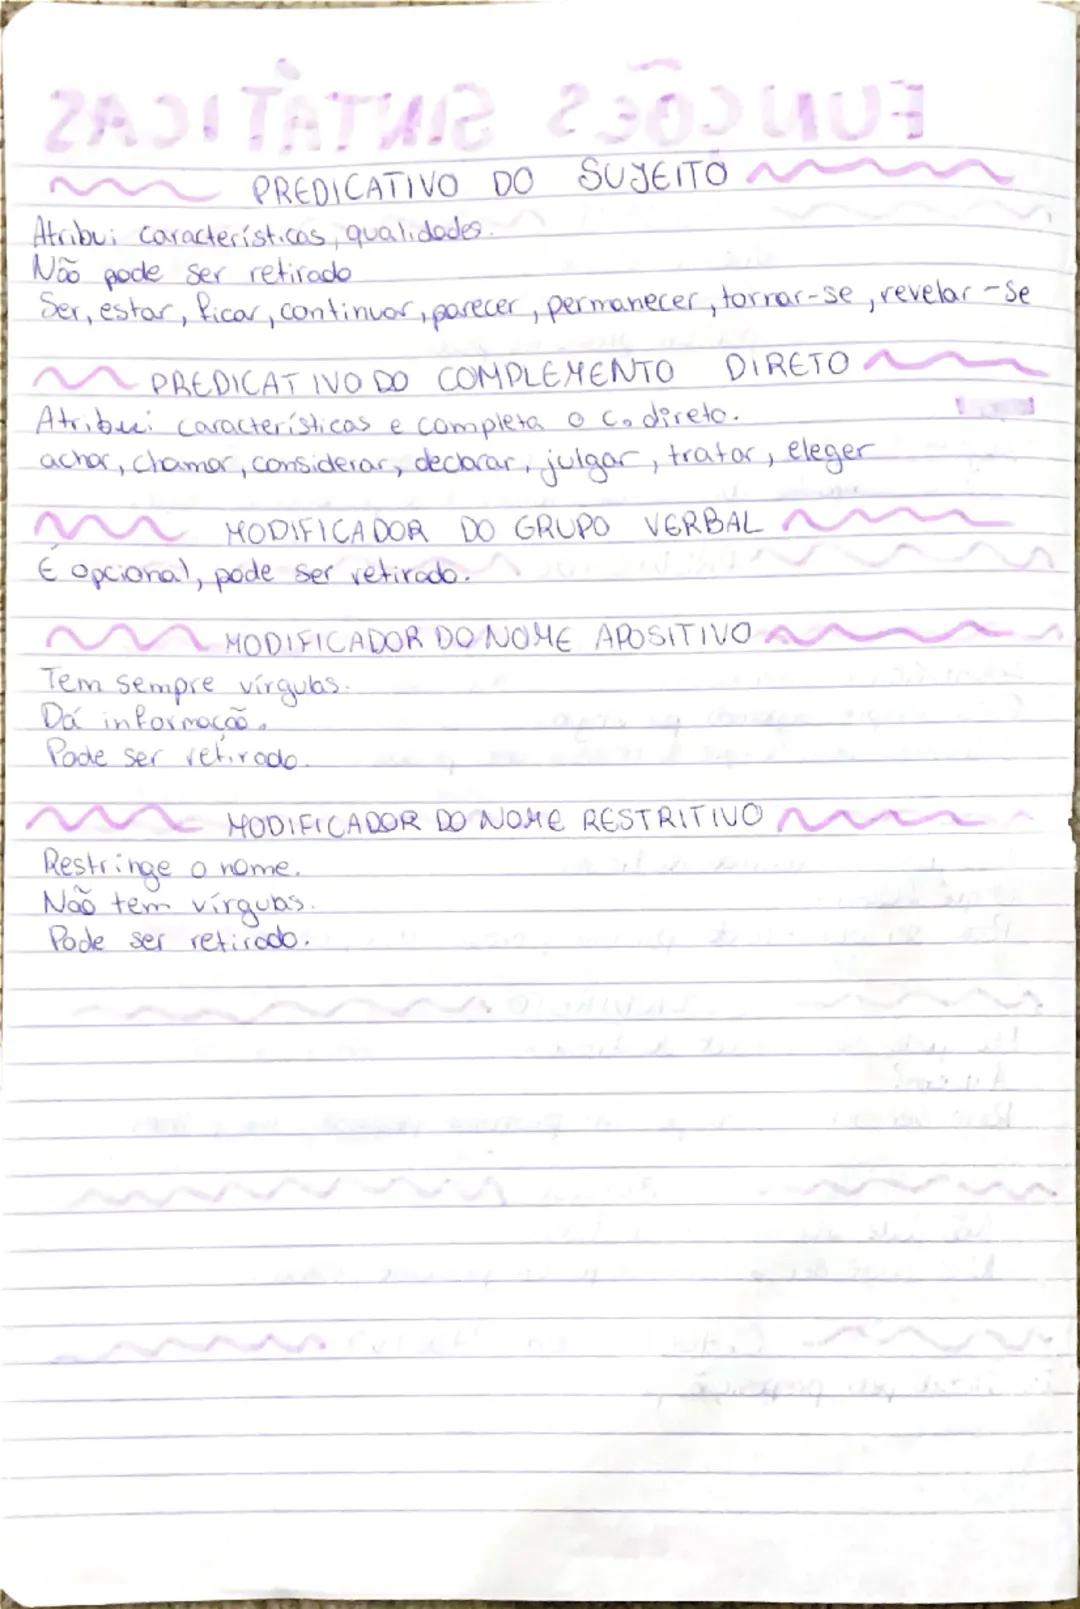 FUNÇÕES SINTÁTICAS
PREDICATIVO DO SUJEITO
Atribui características, qualidades.
Não pode ser retirado
Ser, estar, ficar, continuar, parecer, permanecer, tornar-se, revelar-se
PREDICATIVO DO COMPLEMENTO DIRETO
Atribui características e completa o c. direto.
achar, chamar, considerar, declarar, julgar, tratar, eleger
MODIFICADOR DO GRUPO VERBAL
É opcional, pode ser retirado.
MODIFICADOR DO NOME APOSITIVO
Tem sempre vírgulas.
Dá informação.
Pode ser retirado.
MODIFICADOR DO NOME RESTRITIVO
Restringe o nome.
Não tem vírgulas.
Pode ser retirado.